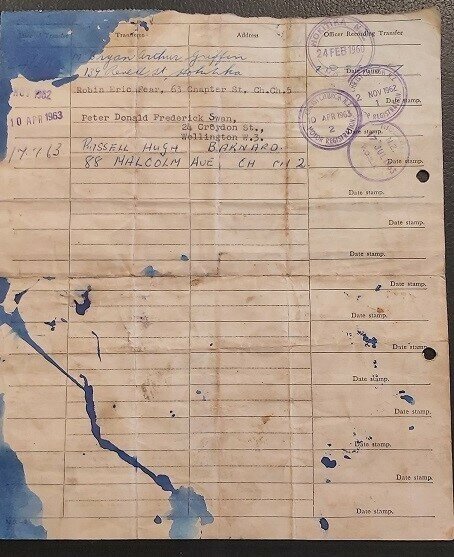 of Transfer Transferee Address Officer Recording Transfer
HOKITIKA, N.Z.
24 FEB 1960
Bryan Arthur Griffin
St. Hokitika
Date stamp.
NOV 1962 Robin Eric Fear, 63 Chapter St. Ch.Ch.5
2 NOV 1962
1
Date stamp.
10 APR 1963 Peter Donald Frederick Swan,
24 Croydon St.,
Wellington W.3.
10 APR 1963
2
MOTOR REGISTRATION
Date stamp.
17 7 63 RUSSELL HUGH BARNARD.
88 MALCOLM AVE, CH CH 2
Date stamp.
Date stamp.
Date stamp.
Date stamp.
Date stamp.
Date stamp.
Date stamp.
Date stamp.
Date stamp.
Date stamp.
Date stamp.